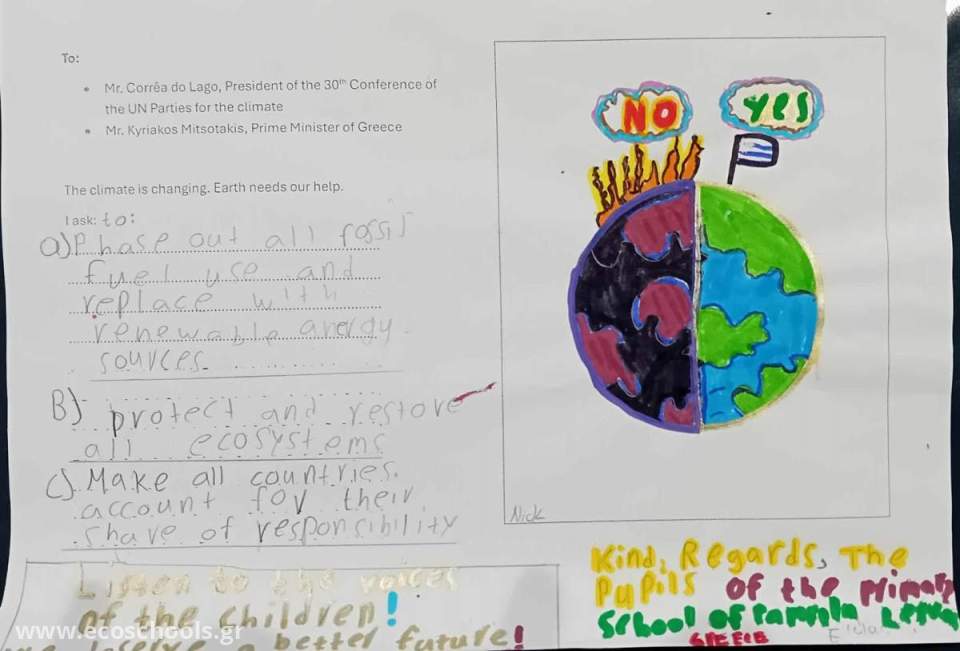 To:
• Mr. Corrêa do Lago, President of the 30th Conference of
the UN Parties for the climate
• Mr. Kyriakos Mitsotakis, Prime Minister of Greece
The climate is changing. Earth needs our help.
I ask: to:
a) Phase out all fossil
fuel use and
replace with
renewable anergy
sources.
B) protect and restore
all ecosystems
c) Make all countries.
account for their
share of responsibility
NO
YES
Nick
Listen to the voices
of the children!
a better future!
Kind, Regards, The
Pupils of the primary
School of Pamfila
www.ecoschools.gr